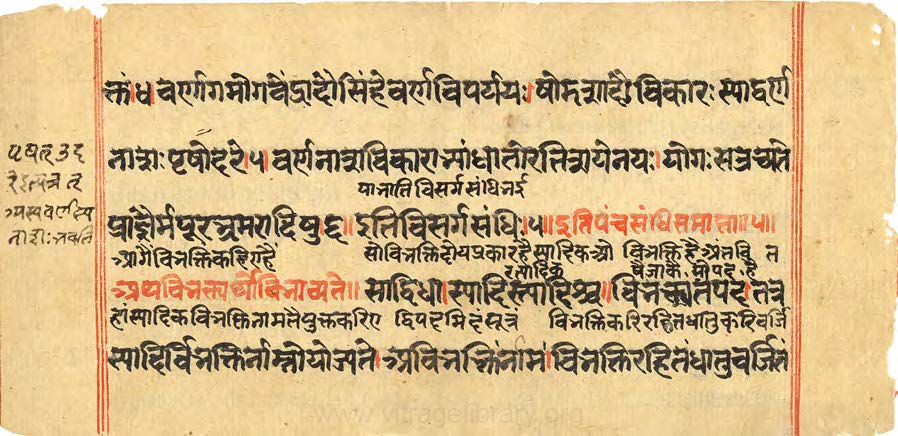 क्तं ४ वर्णागमो गवेंद्रादौ सिंहे वर्णविपर्ययः षोडशादौ विकारः स्याद्वर्ण
नाशः पृषोदरे ५ वर्णनाशविकाराभ्यां धातोरतिशयेन यः योगः स उच्यते
या नाति विसर्ग संधि
प्राज्ञैर्मयूरभ्रमरादिषु ६ ॥ इति विसर्गसंधिः ५ ॥ इति पंचसंधि समाप्ता ॥ ५ ॥
आगै विभक्ति कहिए है
सो विभक्ति दोय प्रकार है स्यादिक औ विभक्ति है अंत
त्यादिक
अथ विभक्त्यर्थो विभाव्यते ॥ सा द्विधा स्यादिस्त्यादिश्च ॥ विभक्त्यंतं पदं तत्र
हां स्यादिक विभक्ति नाम तै युक्त करिए
विभक्ति करि रहित धातु करि वर्जि
स्यादिर्विभक्तिर्नाम्नो योज्यते अविभक्ति नाम विभक्तिरहितं धातुवर्जितं
पृषत् उद
www.vitragelibrary.org